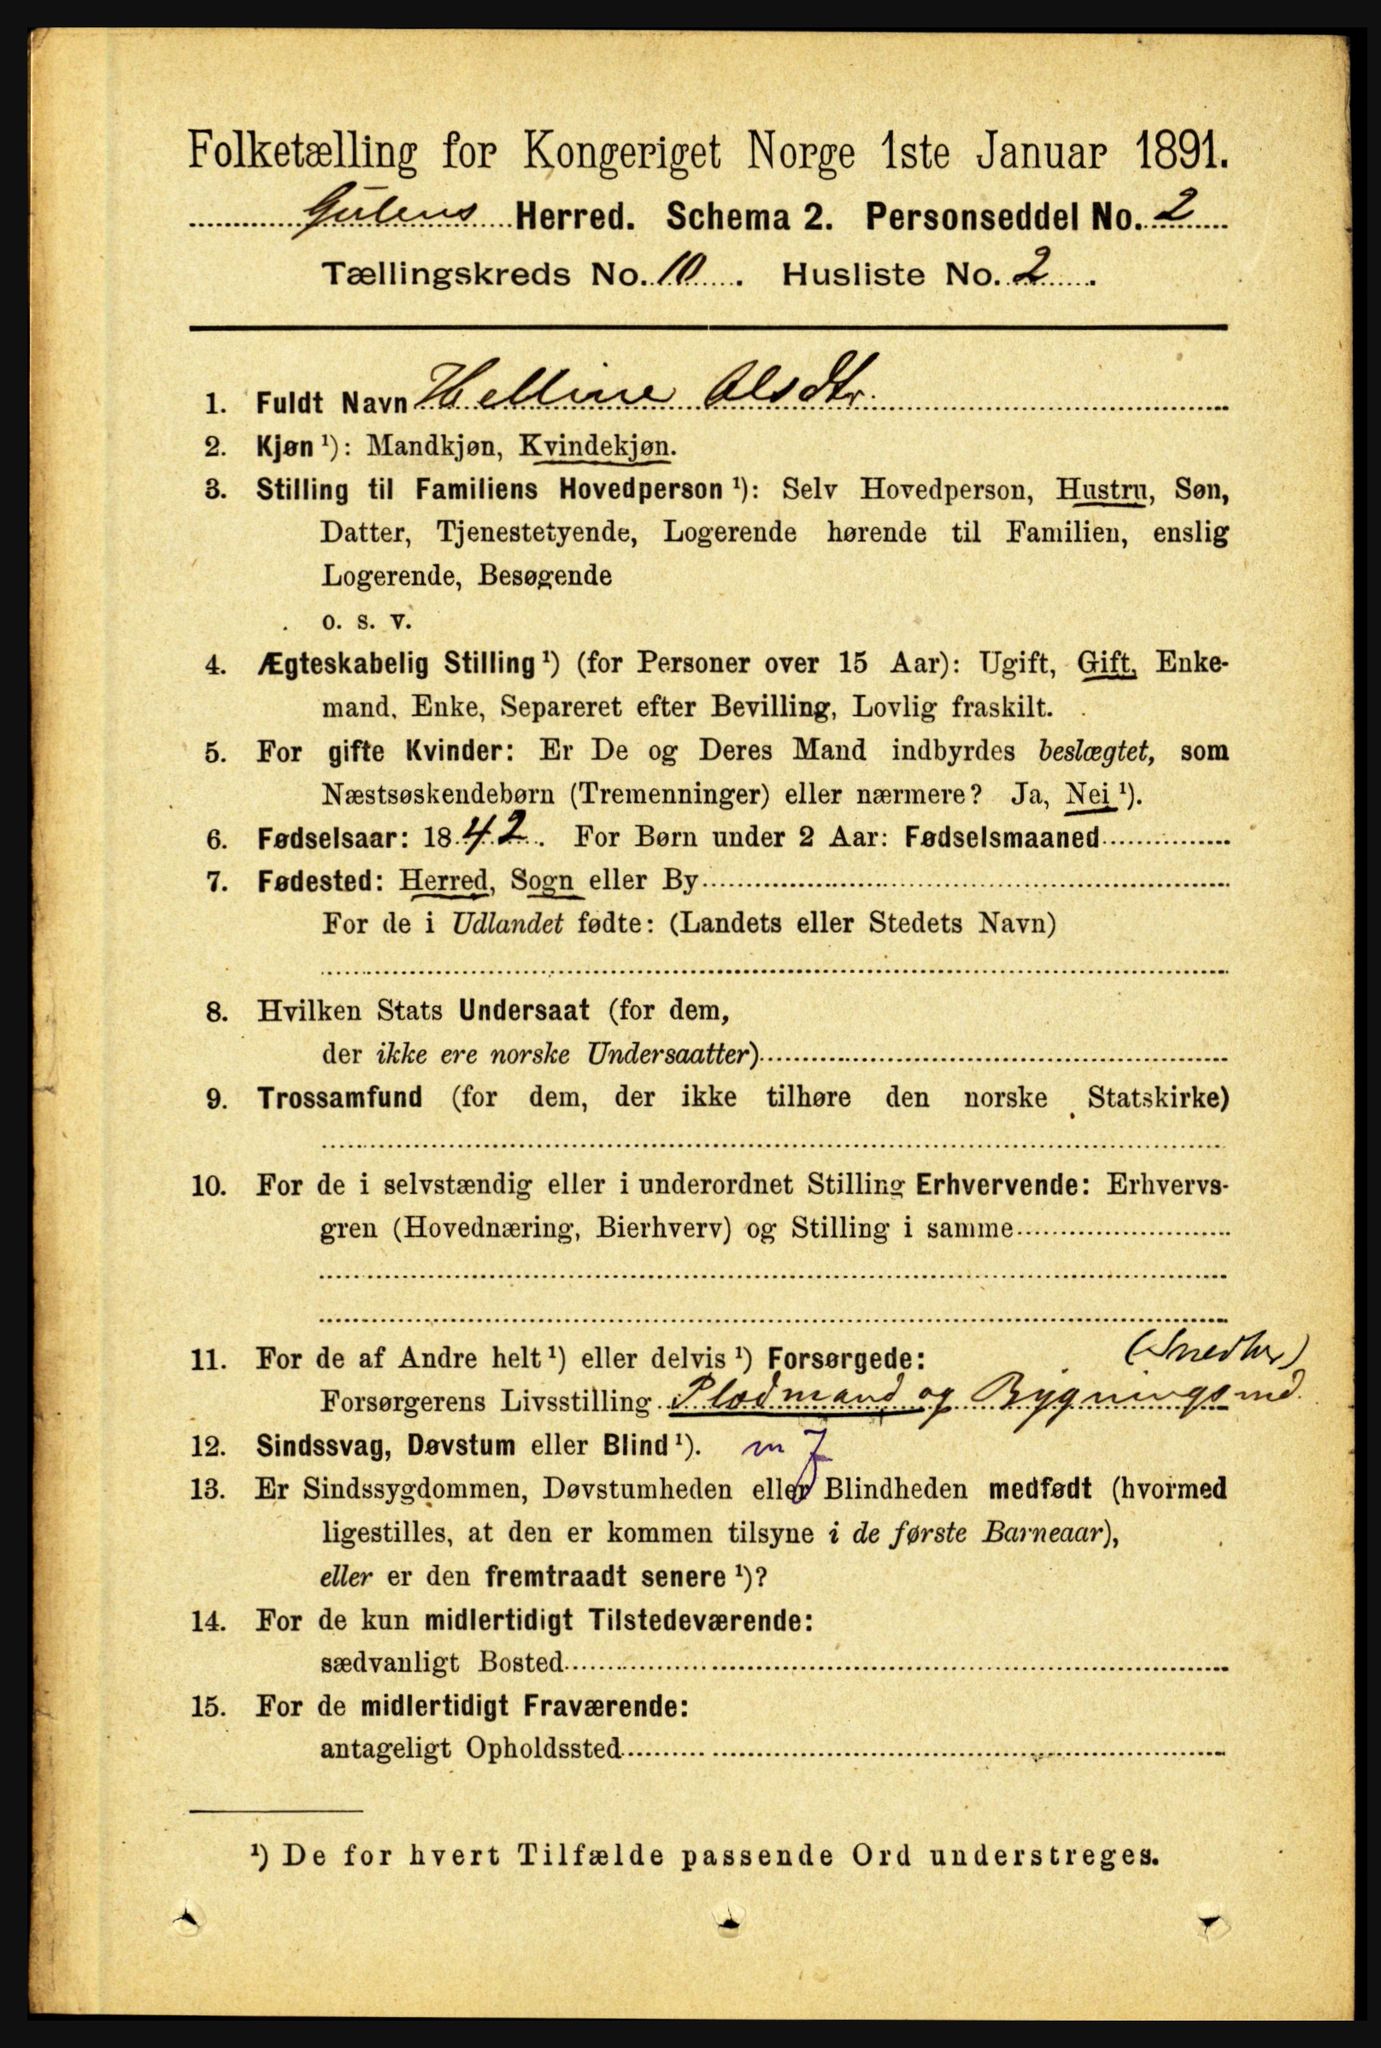 Folketælling for Kongeriget Norge 1ste Januar 1891.
Gulens Herred. Schema 2. Personseddel No. 2
Tællingskreds No. 10. Husliste No. 2.
1. Fuldt Navn Helline Olsdtr.
2. Kjøn ¹): Mandkjøn, Kvindekjøn.
3. Stilling til Familiens Hovedperson ¹): Selv Hovedperson, Hustru, Søn,
Datter, Tjenestetyende, Logerende hørende til Familien, enslig
Logerende, Besøgende
o. s. v.
4. Ægteskabelig Stilling ¹) (for Personer over 15 Aar): Ugift, Gift, Enke-
mand, Enke, Separeret efter Bevilling, Lovlig fraskilt.
5. For gifte Kvinder: Er De og Deres Mand indbyrdes beslægtet, som
Næstsøskendebørn (Tremenninger) eller nærmere? Ja, Nei ¹).
6. Fødselsaar: 1842. For Børn under 2 Aar: Fødselsmaaned
7. Fødested: Herred, Sogn eller By
For de i Udlandet fødte: (Landets eller Stedets Navn)
8. Hvilken Stats Undersaat (for dem,
der ikke ere norske Undersaatter)
9. Trossamfund (for dem, der ikke tilhøre den norske Statskirke)
10. For de i selvstændig eller i underordnet Stilling Erhvervende: Erhvervs-
gren (Hovednæring, Bierhverv) og Stilling i samme
11. For de af Andre helt ¹) eller delvis ¹) Forsørgede: (Snedker)
Forsørgerens Livsstilling Pladsmand og Bygningsmd.
12. Sindssvag, Døvstum eller Blind ¹).
13. Er Sindssygdommen, Døvstumheden eller Blindheden medfødt (hvormed
ligestilles, at den er kommen tilsyne i de første Barneaar),
eller er den fremtraadt senere ¹)?
14. For de kun midlertidigt Tilstedeværende:
sædvanligt Bosted
15. For de midlertidigt Fraværende:
antageligt Opholdssted
¹) De for hvert Tilfælde passende Ord understreges.